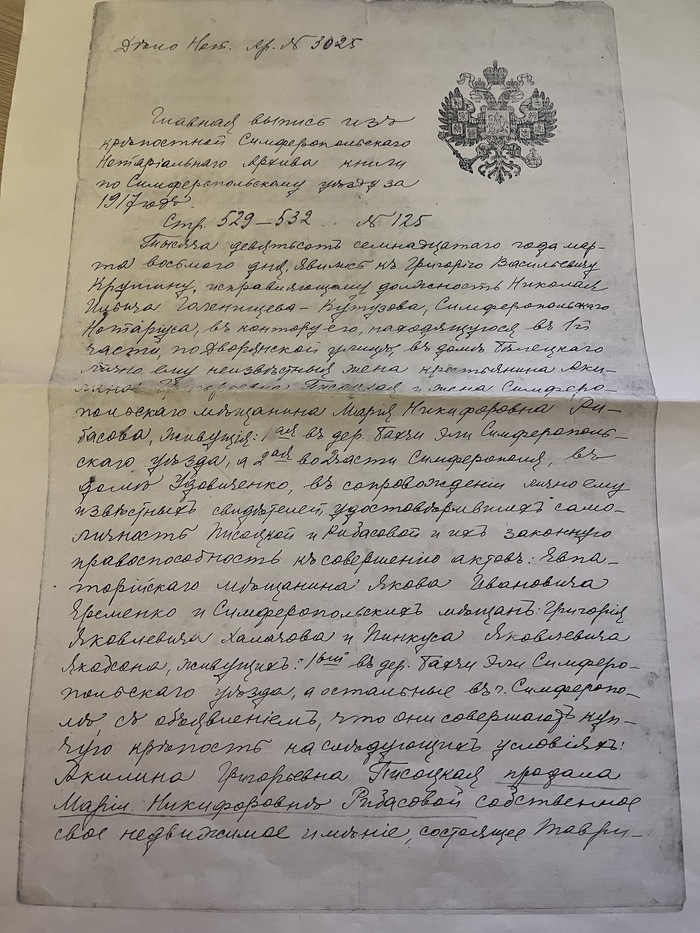 Дѣло Нот. Ар. № 3025
Главная выпись изъ
крѣпостной Симферопольскаго
Нотаріальнаго Архива книги
по Симферопольскому уѣзду за
1917 годъ
Стр. 529–532 .. № 125
Тысяча девятьсотъ семнадцатаго года мар-
та восьмого дня, явились къ Григорію Васильевичу
исправляющему должность Николая
Голенищева-Кутузова, Симферопольскаго
Нотаріуса, въ контору его, находящуюся въ 1й
части, по Дворянской улицѣ, въ домѣ
лично ему неизвѣстныя жена крестьянина Аки-
лина Григорьевна Писоцкая и жена Симферо-
польскаго мѣщанина Марія Никифоровна Ри-
басова, живущія: 1ая въ дер. Бахчи Эли Симферополь-
скаго уѣзда, а 2ая во 2 части Симферополя, въ
домѣ Удовиченко, въ сопровожденіи лично ему
извѣстныхъ свидѣтелей, удостовѣрившихъ само-
личность Писоцкой и Рибасовой и ихъ законную
правоспособность къ совершенію актовъ: Евпа-
торійскаго мѣщанина Якова Ивановича
Еременко и Симферопольскихъ мѣщанъ: Григорія
Яковлевича и Пинкуса Яковлевича
Якобсона, живущихъ: 1ый въ дер. Бахчи Эли Симферо-
польскаго уѣзда, а остальные въ г. Симферопо-
лѣ, съ объявленіемъ, что они совершаютъ куп-
чую крѣпость на слѣдующихъ условіяхъ:
Акилина Григорьевна Писоцкая продала
Маріи Никифоровнѣ Рибасовой собственное
свое недвижимое имѣніе, состоящее Таври-